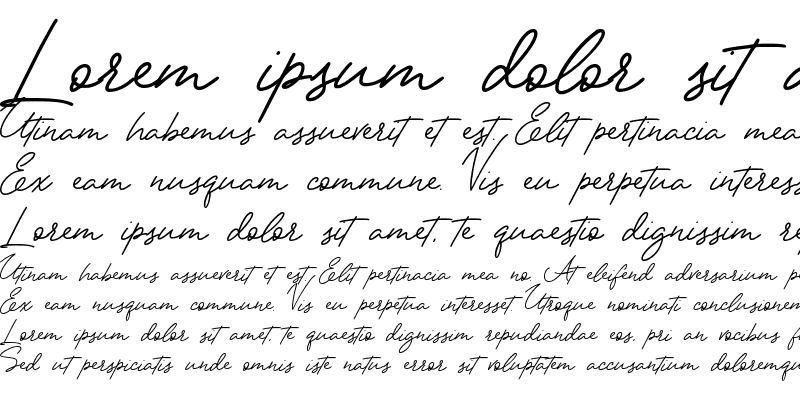 Lorem ipsum dolor sit a
Utinam habemus assueverit et est. Elit pertinacia mea
Ex eam nusquam commune. Vis eu perpetua interess
Lorem ipsum dolor sit amet, te quaestio dignissim re
Utinam habemus assueverit et est. Elit pertinacia mea no. At eleifend adversarium p
Ex eam nusquam commune. Vis eu perpetua interesset. Utroque nominati conclusionem
Lorem ipsum dolor sit amet, te quaestio dignissim repudiandae eos, pri an vocibus f
Sed ut perspiciatis unde omnis iste natus error sit voluptatem accusantium doloremqu